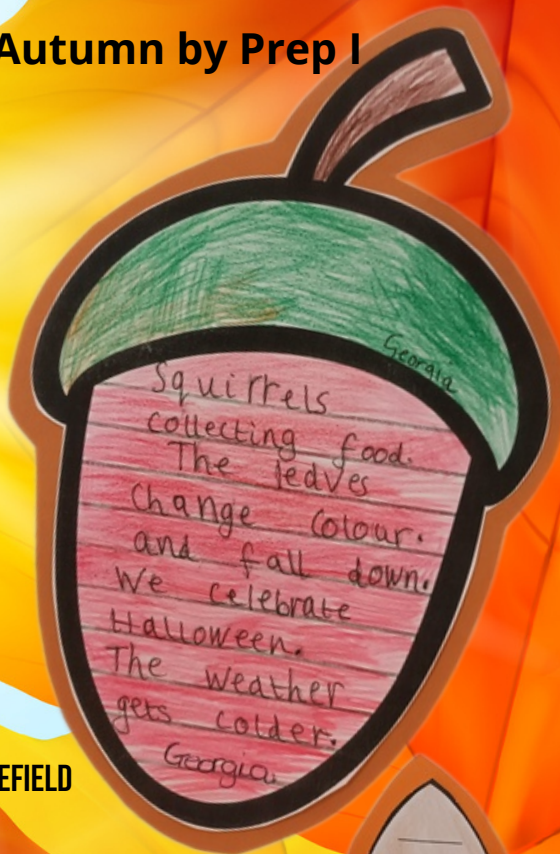 Autumn by Prep I
Georgia
Squirrels
collecting food.
The leaves
Change Colour.
and fall down.
We celebrate
Halloween.
The weather
gets colder.
Georgia.
EFIELD